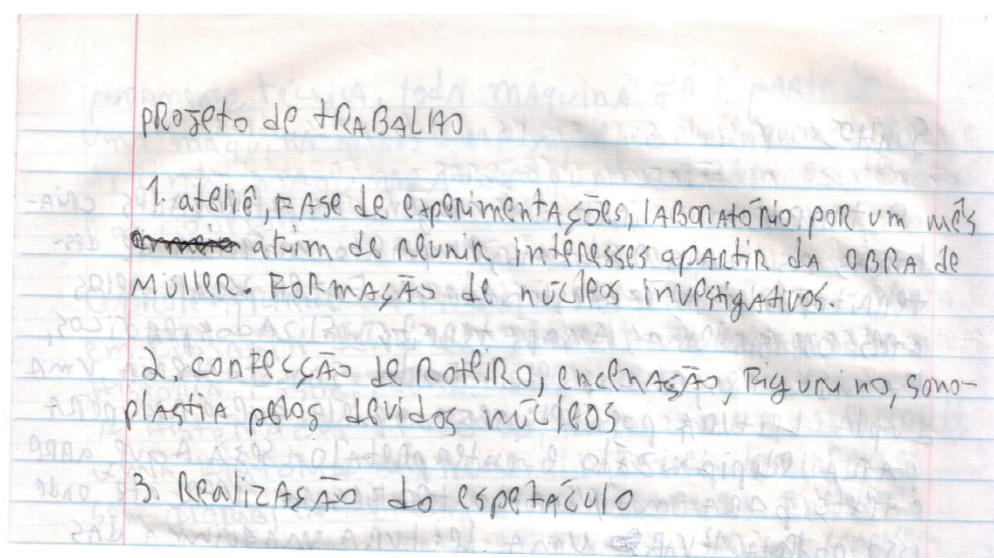 projeto de trabalho
1. ateliê, fase de experimentações, laboratório por um mês
afim de reunir interesses apartir da obra de
Müller. Formação de núcleos investigativos.
2. confecção de roteiro, encenação, figurino, sono-
plastia pelos devidos núcleos
3. Realização do espetáculo